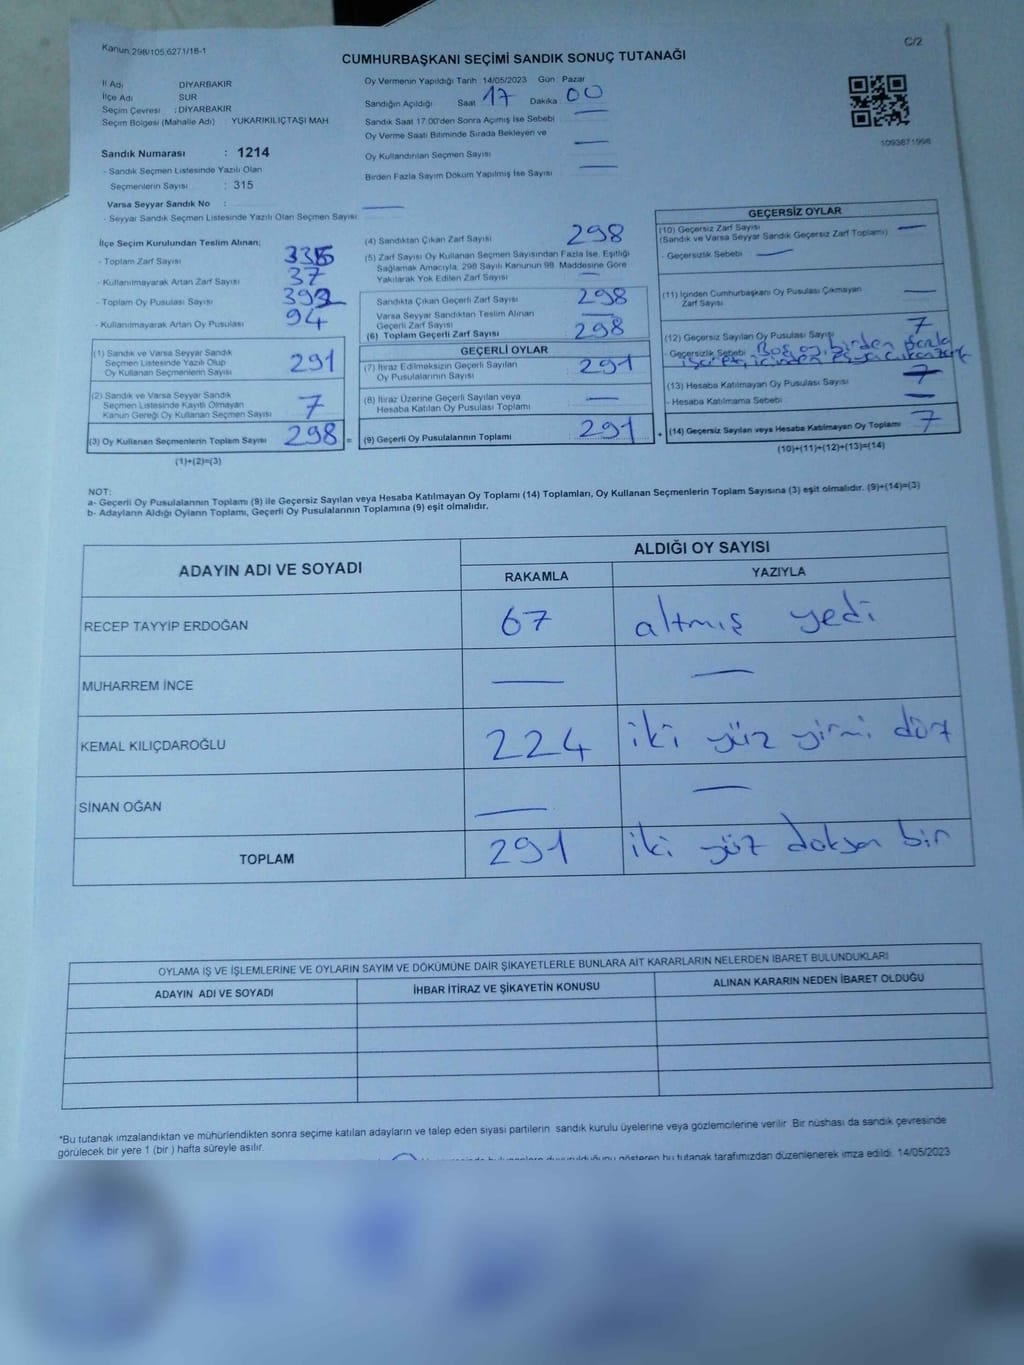 Kanun 298/105,6271/16-1
C/2
CUMHURBAŞKANI SEÇİMİ SANDIK SONUÇ TUTANAĞI
İl Adı DİYARBAKIR
İlçe Adı SUR
Seçim Çevresi : DİYARBAKIR
Seçim Bölgesi (Mahalle Adı) : YUKARIKILIÇTAŞI MAH.
Sandık Numarası : 1214
- Sandık Seçmen Listesinde Yazılı Olan
Seçmenlerin Sayısı : 315
Varsa Seyyar Sandık No :
- Seyyar Sandık Seçmen Listesinde Yazılı Olan Seçmen Sayısı
Oy Vermenin Yapıldığı Tarih 14/05/2023 Gün : Pazar
Sandığın Açıldığı Saat 17 Dakika : 00
Sandık Saat 17:00'den Sonra Açılmış İse Sebebi
Oy Verme Saati Bitiminde Sırada Bekleyen ve
Oy Kullandırılan Seçmen Sayısı
Birden Fazla Sayım Döküm Yapılmış İse Sayısı
1093871998
İlçe Seçim Kurulundan Teslim Alınan;
- Toplam Zarf Sayısı
- Kullanılmayarak Artan Zarf Sayısı 37
- Toplam Oy Pusulası Sayısı
- Kullanılmayarak Artan Oy Pusulası 94
(1) Sandık ve Varsa Seyyar Sandık
Seçmen Listesinde Yazılı Olup
Oy Kullanan Seçmenlerin Sayısı 291
(2) Sandık ve Varsa Seyyar Sandık
Seçmen Listesinde Kayıtlı Olmayan
Kanun Gereği Oy Kullanan Seçmen Sayısı 7
(3) Oy Kullanan Seçmenlerin Toplam Sayısı 298 =
(1)+(2)=(3)
(4) Sandıktan Çıkan Zarf Sayısı 298
(5) Zarf Sayısı Oy Kullanan Seçmen Sayısından Fazla İse, Eşitliği
Sağlamak Amacıyla, 298 Sayılı Kanunun 98. Maddesine Göre
Yakılarak Yok Edilen Zarf Sayısı
Sandıkta Çıkan Geçerli Zarf Sayısı 298
Varsa Seyyar Sandıktan Teslim Alınan
Geçerli Zarf Sayısı
(6) Toplam Geçerli Zarf Sayısı 298
GEÇERLİ OYLAR
(7) İtiraz Edilmeksizin Geçerli Sayılan
Oy Pusulalarının Sayısı 291
(8) İtiraz Üzerine Geçerli Sayılan veya
Hesaba Katılan Oy Pusulası Toplamı
(9) Geçerli Oy Pusulalarının Toplamı 291 +
GEÇERSİZ OYLAR
(10) Geçersiz Zarf Sayısı
(Sandık ve Varsa Seyyar Sandık Geçersiz Zarf Toplamı)
- Geçersizlik Sebebi
(11) İçinden Cumhurbaşkanı Oy Pusulası Çıkmayan
Zarf Sayısı
(12) Geçersiz Sayılan Oy Pusulası Sayısı 7
- Geçersizlik Sebebi Boş oy, birden fazla
(13) Hesaba Katılmayan Oy Pusulası Sayısı
- Hesaba Katılmama Sebebi
(14) Geçersiz Sayılan veya Hesaba Katılmayan Oy Toplamı 7
(10)+(11)+(12)+(13)=(14)
NOT:
a- Geçerli Oy Pusulalarının Toplamı (9) ile Geçersiz Sayılan veya Hesaba Katılmayan Oy Toplamı (14) Toplamları, Oy Kullanan Seçmenlerin Toplam Sayısına (3) eşit olmalıdır. (9)+(14)=(3)
b- Adayların Aldığı Oyların Toplamı, Geçerli Oy Pusulalarının Toplamına (9) eşit olmalıdır.
ADAYIN ADI VE SOYADI
ALDIĞI OY SAYISI
RAKAMLA YAZIYLA
RECEP TAYYİP ERDOĞAN 67 altmış yedi
MUHARREM İNCE
KEMAL KILIÇDAROĞLU 224 iki yüz yirmi dört
SİNAN OĞAN
TOPLAM 291 iki yüz doksan bir
OYLAMA İŞ VE İŞLEMLERİNE VE OYLARIN SAYIM VE DÖKÜMÜNE DAİR ŞİKAYETLERLE BUNLARA AİT KARARLARIN NELERDEN İBARET BULUNDUKLARI
ADAYIN ADI VE SOYADI İHBAR İTİRAZ VE ŞİKAYETİN KONUSU ALINAN KARARIN NEDEN İBARET OLDUĞU
*Bu tutanak imzalandıktan ve mühürlendikten sonra seçime katılan adayların ve talep eden siyasi partilerin sandık kurulu üyelerine veya gözlemcilerine verilir. Bir nüshası da sandık çevresinde
görülecek bir yere 1 (bir) hafta süreyle asılır.
gösteren bu tutanak tarafımızdan düzenlenerek imza edildi. 14/05/2023